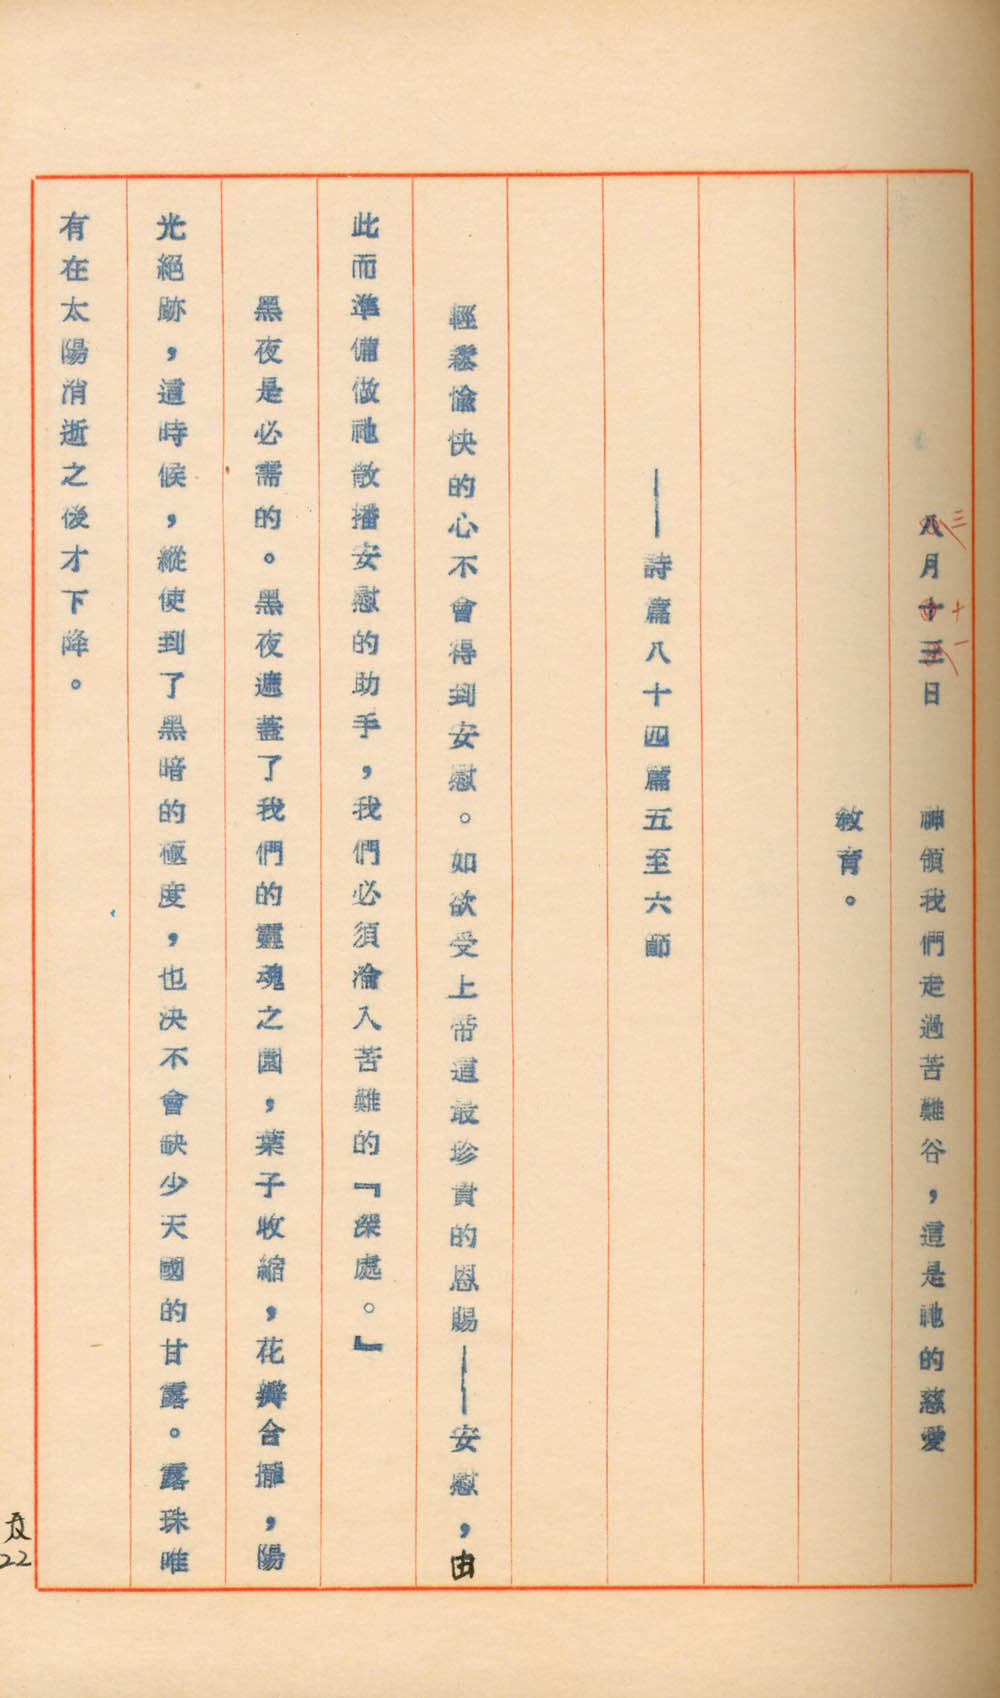 八月十三日　神領我們走過苦難谷，這是祂的慈愛
三
十一
教育。
——詩篇八十四篇五至六節
輕鬆愉快的心不會得到安慰。如欲受上帝這最珍貴的恩賜——安慰，由
此而準備做祂散播安慰的助手，我們必須淪入苦難的『深處。』
黑夜是必需的。黑夜遮蓋了我們的靈魂之園，葉子收縮，花瓣合攏，陽
光絕跡，這時候，縱使到了黑暗的極度，也決不會缺少天國的甘露。露珠唯
有在太陽消逝之後才下降。
22